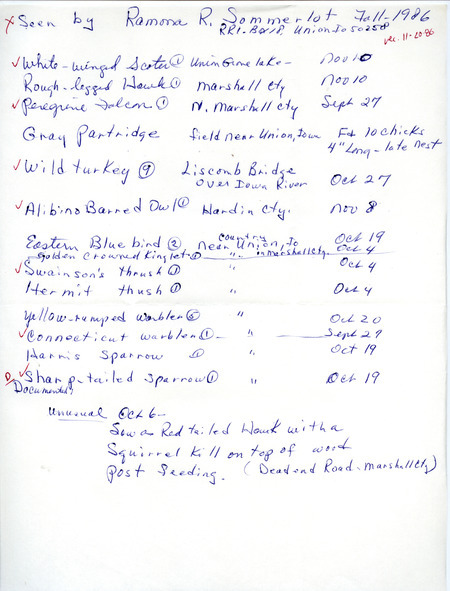 x Seen by Ramona R. Sommerlot Fall-1986
RR1-Box 18 Union Io 50258
rec. 11-20-86
✓ White-winged Scoter ① Union Grove lake- Nov 10
Rough-legged Hawk ① Marshall Cty Nov 10
✓ Peregrine Falcon ① N. Marshall Cty Sept 27
Gray Partridge field near Union, Iowa F+ 10 chicks
4" Long - late nest
✓ Wild turkey ⑨ Liscomb Bridge
over Iowa River Oct 27
✓ Albino Barred Owl ① Hardin Cty. Nov 8
Eastern Blue bird ② Country near Union, Io Oct 19
Golden Crowned Kinglet ① " in Marshall Cty Oct 4
✓ Swainson's thrush ① " Oct 4
Hermit thush ① " Oct 4
Yellow-rumped warbler ⑤ " Oct 20
✓ Connecticut warbler ① " Sept 29
Harris Sparrow ① " Oct 19
D ✓ Sharp-tailed Sparrow ① " Oct 19
Documented?
Unusual Oct 6-
Saw a Red tailed Hawk with a
Squirrel Kill on top of wood
post feeding. (Dead end Road - Marshall Cty)